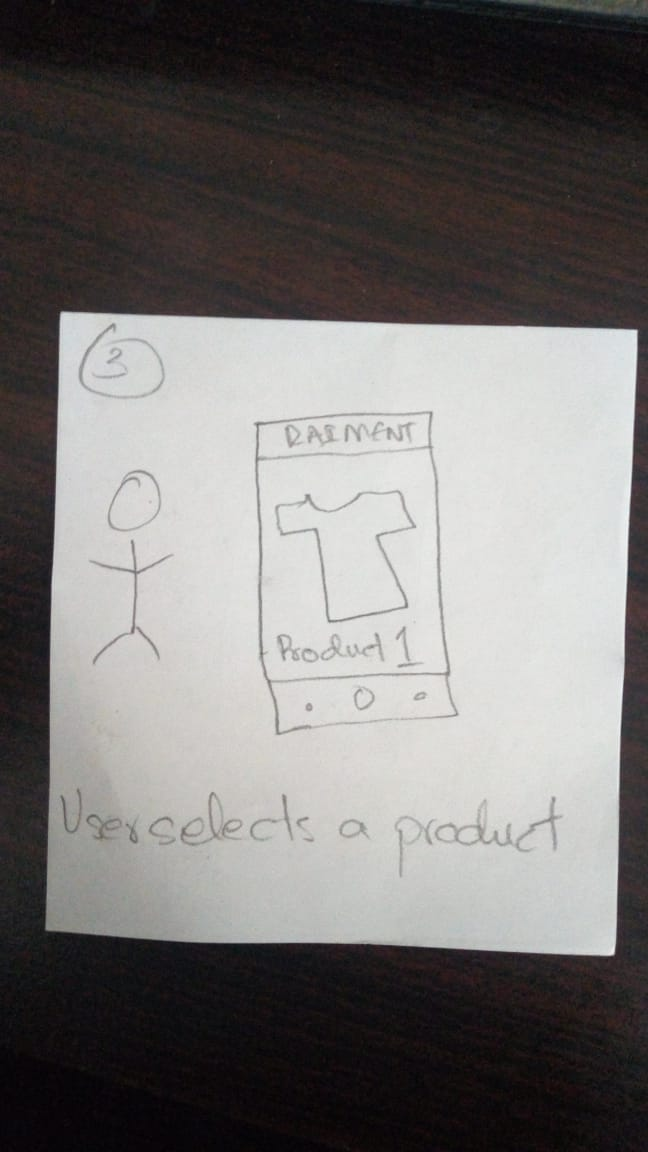 3
RAIMENT
Product 1
User selects a product